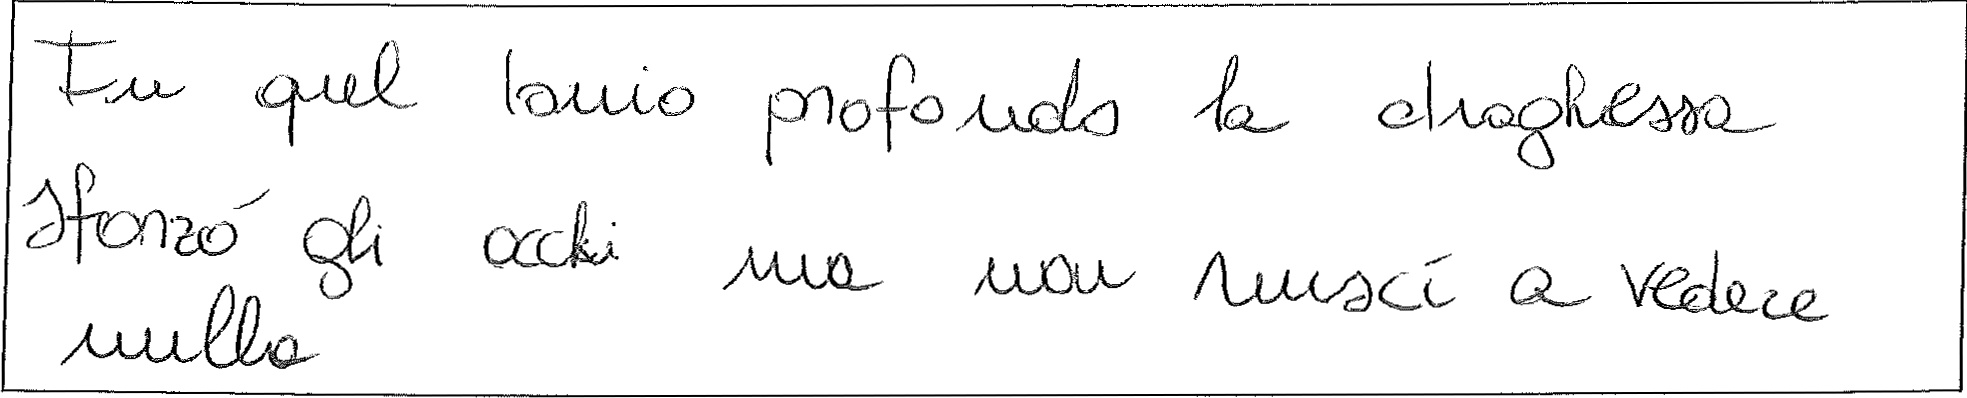 In quel buio profondo la draghessa
sforzó gli occhi ma non riuscí a vedere
nulla